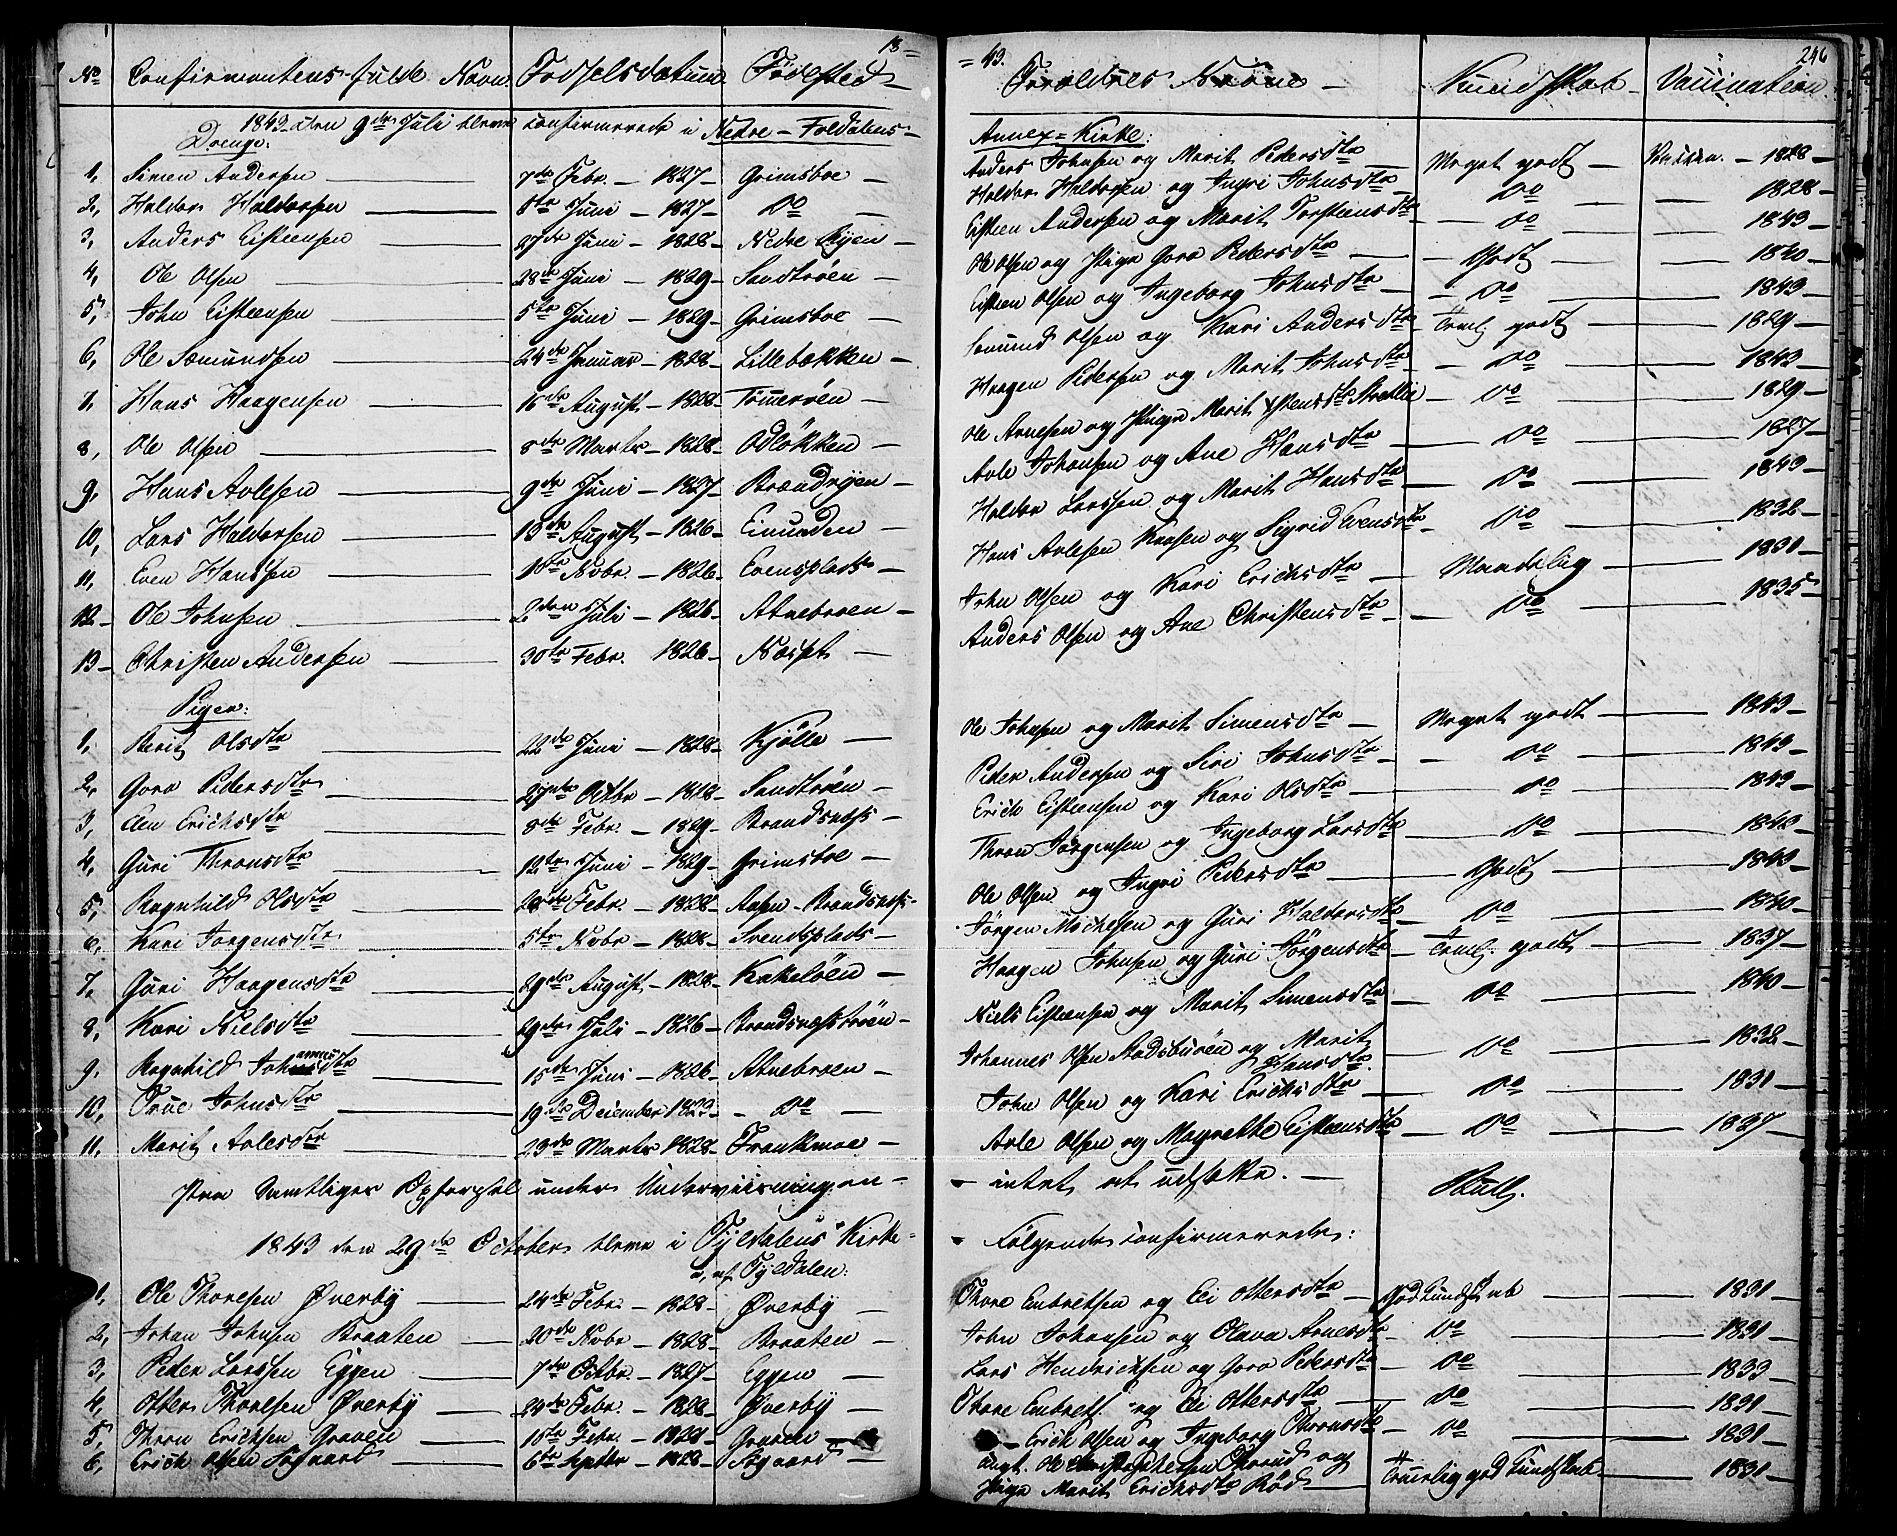 18 = = 43. 246
No Confirmantens fulde Navn. Fødselsdatum Fødested Forældres Navne Kundskab Vaccination.
1843 den 9de Juli bleve confirmerede i Nedre-Foldalens- Annex-Kirke:
Drenge:
1, Simen Andersen 7de Febr. 1827 Grimsboe Anders Johnsen og Marit Pedersdtr Meget godt 1828
2, Haldor Haldorsen 8de Juni 1827 Do Haldor Haldorsen og Ingri Johnsdtr Do 1828
3, Anders Eisteensen 27de Juni 1828 Nedre Eisteen Andersen og Marit Torsteensdtr Do 1843
4, Ole Olsen 28de Juni 1829 Sandtrøen Ole Olsen og Pige Goro Pedersdtr Godt 1840
5, John Eisteensen 5te Juni 1829 Grimsboe Eisteen Olsen og Ingeborg Johnsdtr Do 1843
6, Ole Sæmundsen 24de Januar 1828 Lillebækken Sæmund Olsen og Kari Andersdtr Teml. godt 1829
7, Hans Haagensen 16de August 1828 Haagen Pedersen og Marit Johnsdtr Do 1843
8, Ole Olsen 8de Marts 1828 Odløkken Ole Arnesen og Pige Marit Do 1829
9, Hans Avlesen 9de Juni 1827 Brændryen Avle Johansen og Ane Hansdtr Do 1827
10, Lars Haldorsen 13de August 1826 Einunden Haldor Larssen og Marit Hansdtr Do 1843
11, Even Hansen 1ste Novbr. 1826 Evensplads Hans Avlesen og Sigrid Evensdtr Do 1832
12 Ole Johnsen 2den Juli 1826 Atnebroen John Olsen og Kari Erichsdtr Maadelig 1831
13 Christen Andersen 30te Febr. 1826 Anders Olsen og Ane Christensdtr Do 1835
Piger:
1, Berit Olsdtr 22de Juni 1828 Kjølle Ole Johnsen og Marit Simensdtr Meget godt 1843
2, Goro Pedersdtr Octbr 1828 Sandtrøen Peder Andersen og Siri Johnsdtr Do 1843
3, Elen Erichsdtr 8de Febr. 1829 Brandsnæss Erich Eisteensen og Kari Olsdtr Do 1843
4, Guri Thronsdtr 12te Juni 1829 Grimsboe Thron Jørgensen og Ingeborg Larsdtr Do 1843
5, Ragnhild Olsdtr 28de Febr. 1828 Aasen-Brandsnæss Ole Olsen og Ingri Pedersdtr Godt 1843
6, Kari Jørgensdtr 5te Novbr 1828 Svendsplads Jørgen Michelsen og Guri Haldorsdtr Do 1840
7, Guri Haagensdtr 29de August 1828 Kakeløen Haagen Johnsen og Guri Jørgensdtr Teml. godt 1837
8, Kari Nielsdtr 29de Juli 1826 Brandsnæstrøen Niels Eisteensen og Marit Simensdtr Do 1840
9, Ragnhild Johannesdtr 15de Juni 1826 Atnebroen Johannes Olsen Stadsbuøen og Marit Johnsdtr. Do 1832
10, Johnsdtr 19de December 1823 Do John Olsen og Kari Erichsdtr Do 1831
11, Marit Avlesdtr 23de Marts 1828 Frankmoe Avle Olsen og Magrethe Eisteensdtr Do 1827
Paa Samtliges Opførsel under Underviisningen intet at udsætte.
1843 den 29de October bleve i Tyldalens Kirke Følgende confirmerede:
a, af Tyldalen:
1, Ole Thoresen Øverby 24de Febr. 1828 Øverby Thore Embretsen og Eli Ottersdtr God Kundskab 1831
2, Johan Johnsen Braaten 20de Novbr 1828 Braaten John Johansen og Olava Arnesdtr Do 1831
3, Peder Larssen Eggen 7de Octbr. 1827 Eggen Lars Hendrichsen og Goro Pedersdtr Do 1833
4, Otter Thoresen Øverby 24de Febr. 1828 Øverby Thore Embrets. og Eli Ottersdtr Do 1831
5, Thron Erichsen Graven 15te Febr. 1828 Graven Erich Olsen og Ingeborg Thronsdtr Do 1831
6, Erich Olsen 6te Septbr 1828 Ungk. Ole og Pige Marit Erichsdtr Rød Temelig god Kundskab 1831